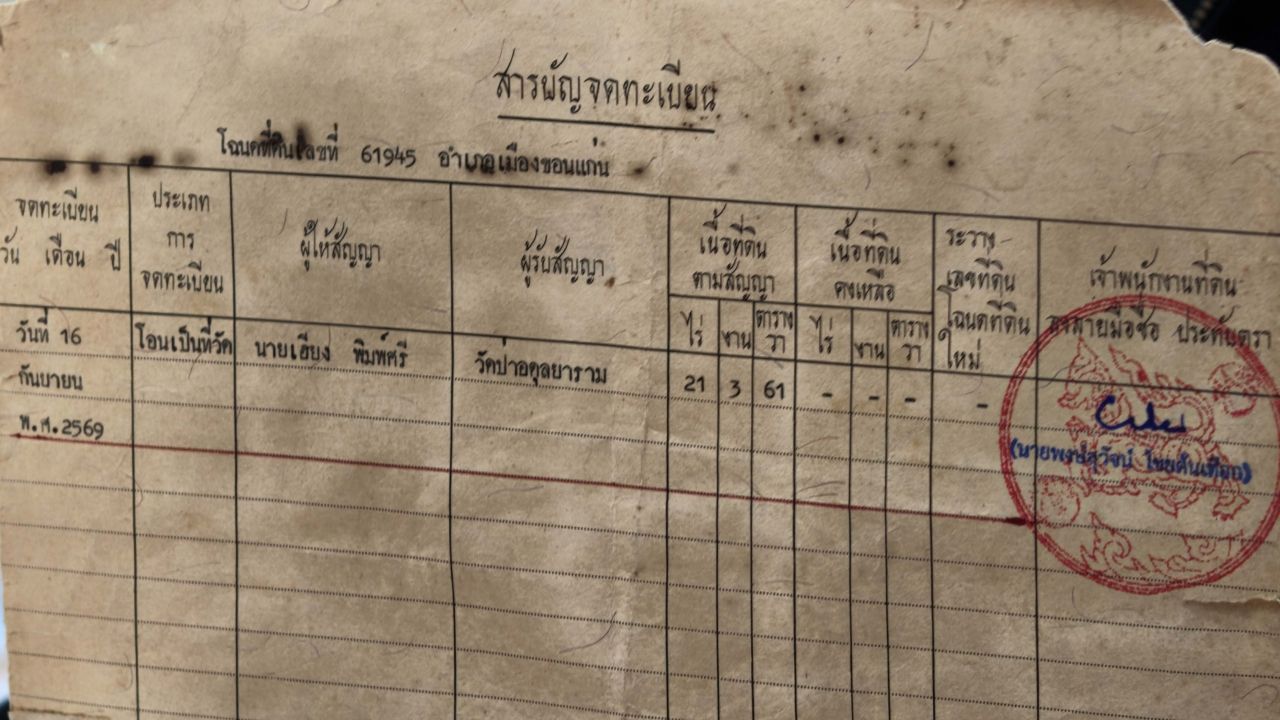 สารบัญจดทะเบียน
โฉนดที่ดินเลขที่ 61945 อำเภอเมืองขอนแก่น
จดทะเบียน วัน เดือน ปี
ประเภท การ จดทะเบียน
ผู้ให้สัญญา
ผู้รับสัญญา
เนื้อที่ดิน ตามสัญญา
เนื้อที่ดิน คงเหลือ
ระวาง เลขที่ดิน โฉนดที่ดิน ใหม่
เจ้าพนักงานที่ดิน ลงลายมือชื่อ ประทับตรา
ไร่ งาน ตาราง วา ไร่ งาน ตาราง วา
วันที่ 16 โอนเป็นที่วัด นายเฮียง พิมพ์ศรี วัดป่าอดุลยาราม 21 3 61 - - - -
กันยายน
พ.ศ.2569
(นายพงษ์สุวัจน์